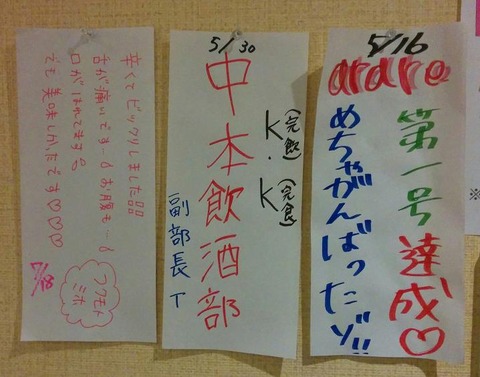 辛くてビックリしました
舌が痛いです…6 お腹も…6
口がはれてます
でも美味しかったです♡♡♡
7/18
フクモト
ミホ
5/30
中本飲酒部
K(完飲)・K(完食)
副部長 T
5/16
arare
第一号達成♡
めちゃがんばったゾ!!
※